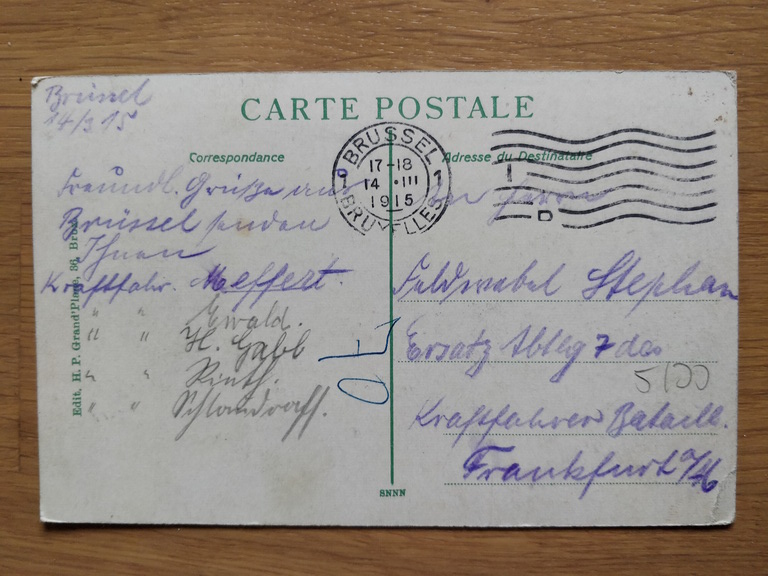 Brüssel
14/3 15
CARTE POSTALE
Correspondance
Adresse du Destinataire
BRÜSSEL
1 17-18 1
14 III
1915
BRUXELLES
Freundl. Grüße aus
Brüssel senden
Ihnen
Kraftfahr. Meffert.
" " Ewald.
" " H. Gabb
" " Rinth.
" " Schlandraff.
Herrn
Feldwebel Stephan
Ersatz Abtlg 7 des
5/00
Kraftfahrer Bataill.
Frankfurt a/M
Edit. H. P. Grand'Place, 36,
SNNN